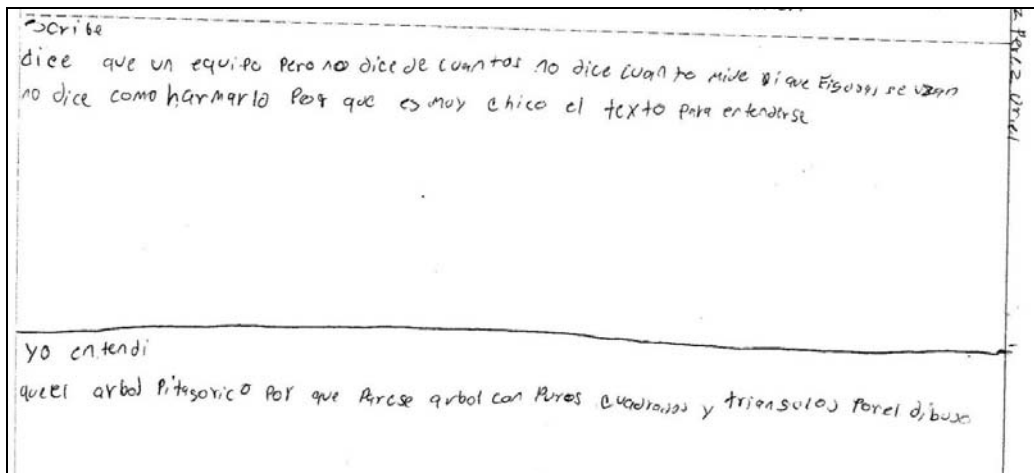 scribe
dice que un equipo pero no dice de cuantos no dice cuanto mide ni que Figuras se usan
no dice como harmarlo Por que es muy chico el texto para entenderse
yo entendi
que el arbol Pitagorico Por que Parese arbol con Puros cuadrados y triangulos Por el dibujo
z Perez Uriel